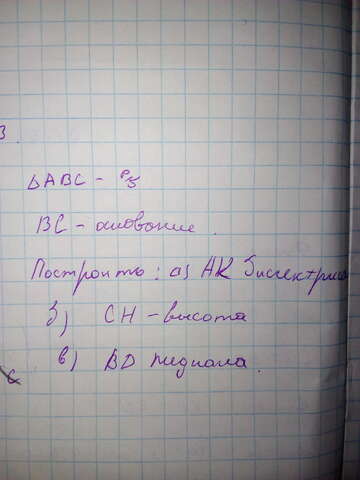 В
△ABC - р/б
BC - основание.
Построить: а) AK биссектриса
б) CH - высота
в) BD медиана.
с